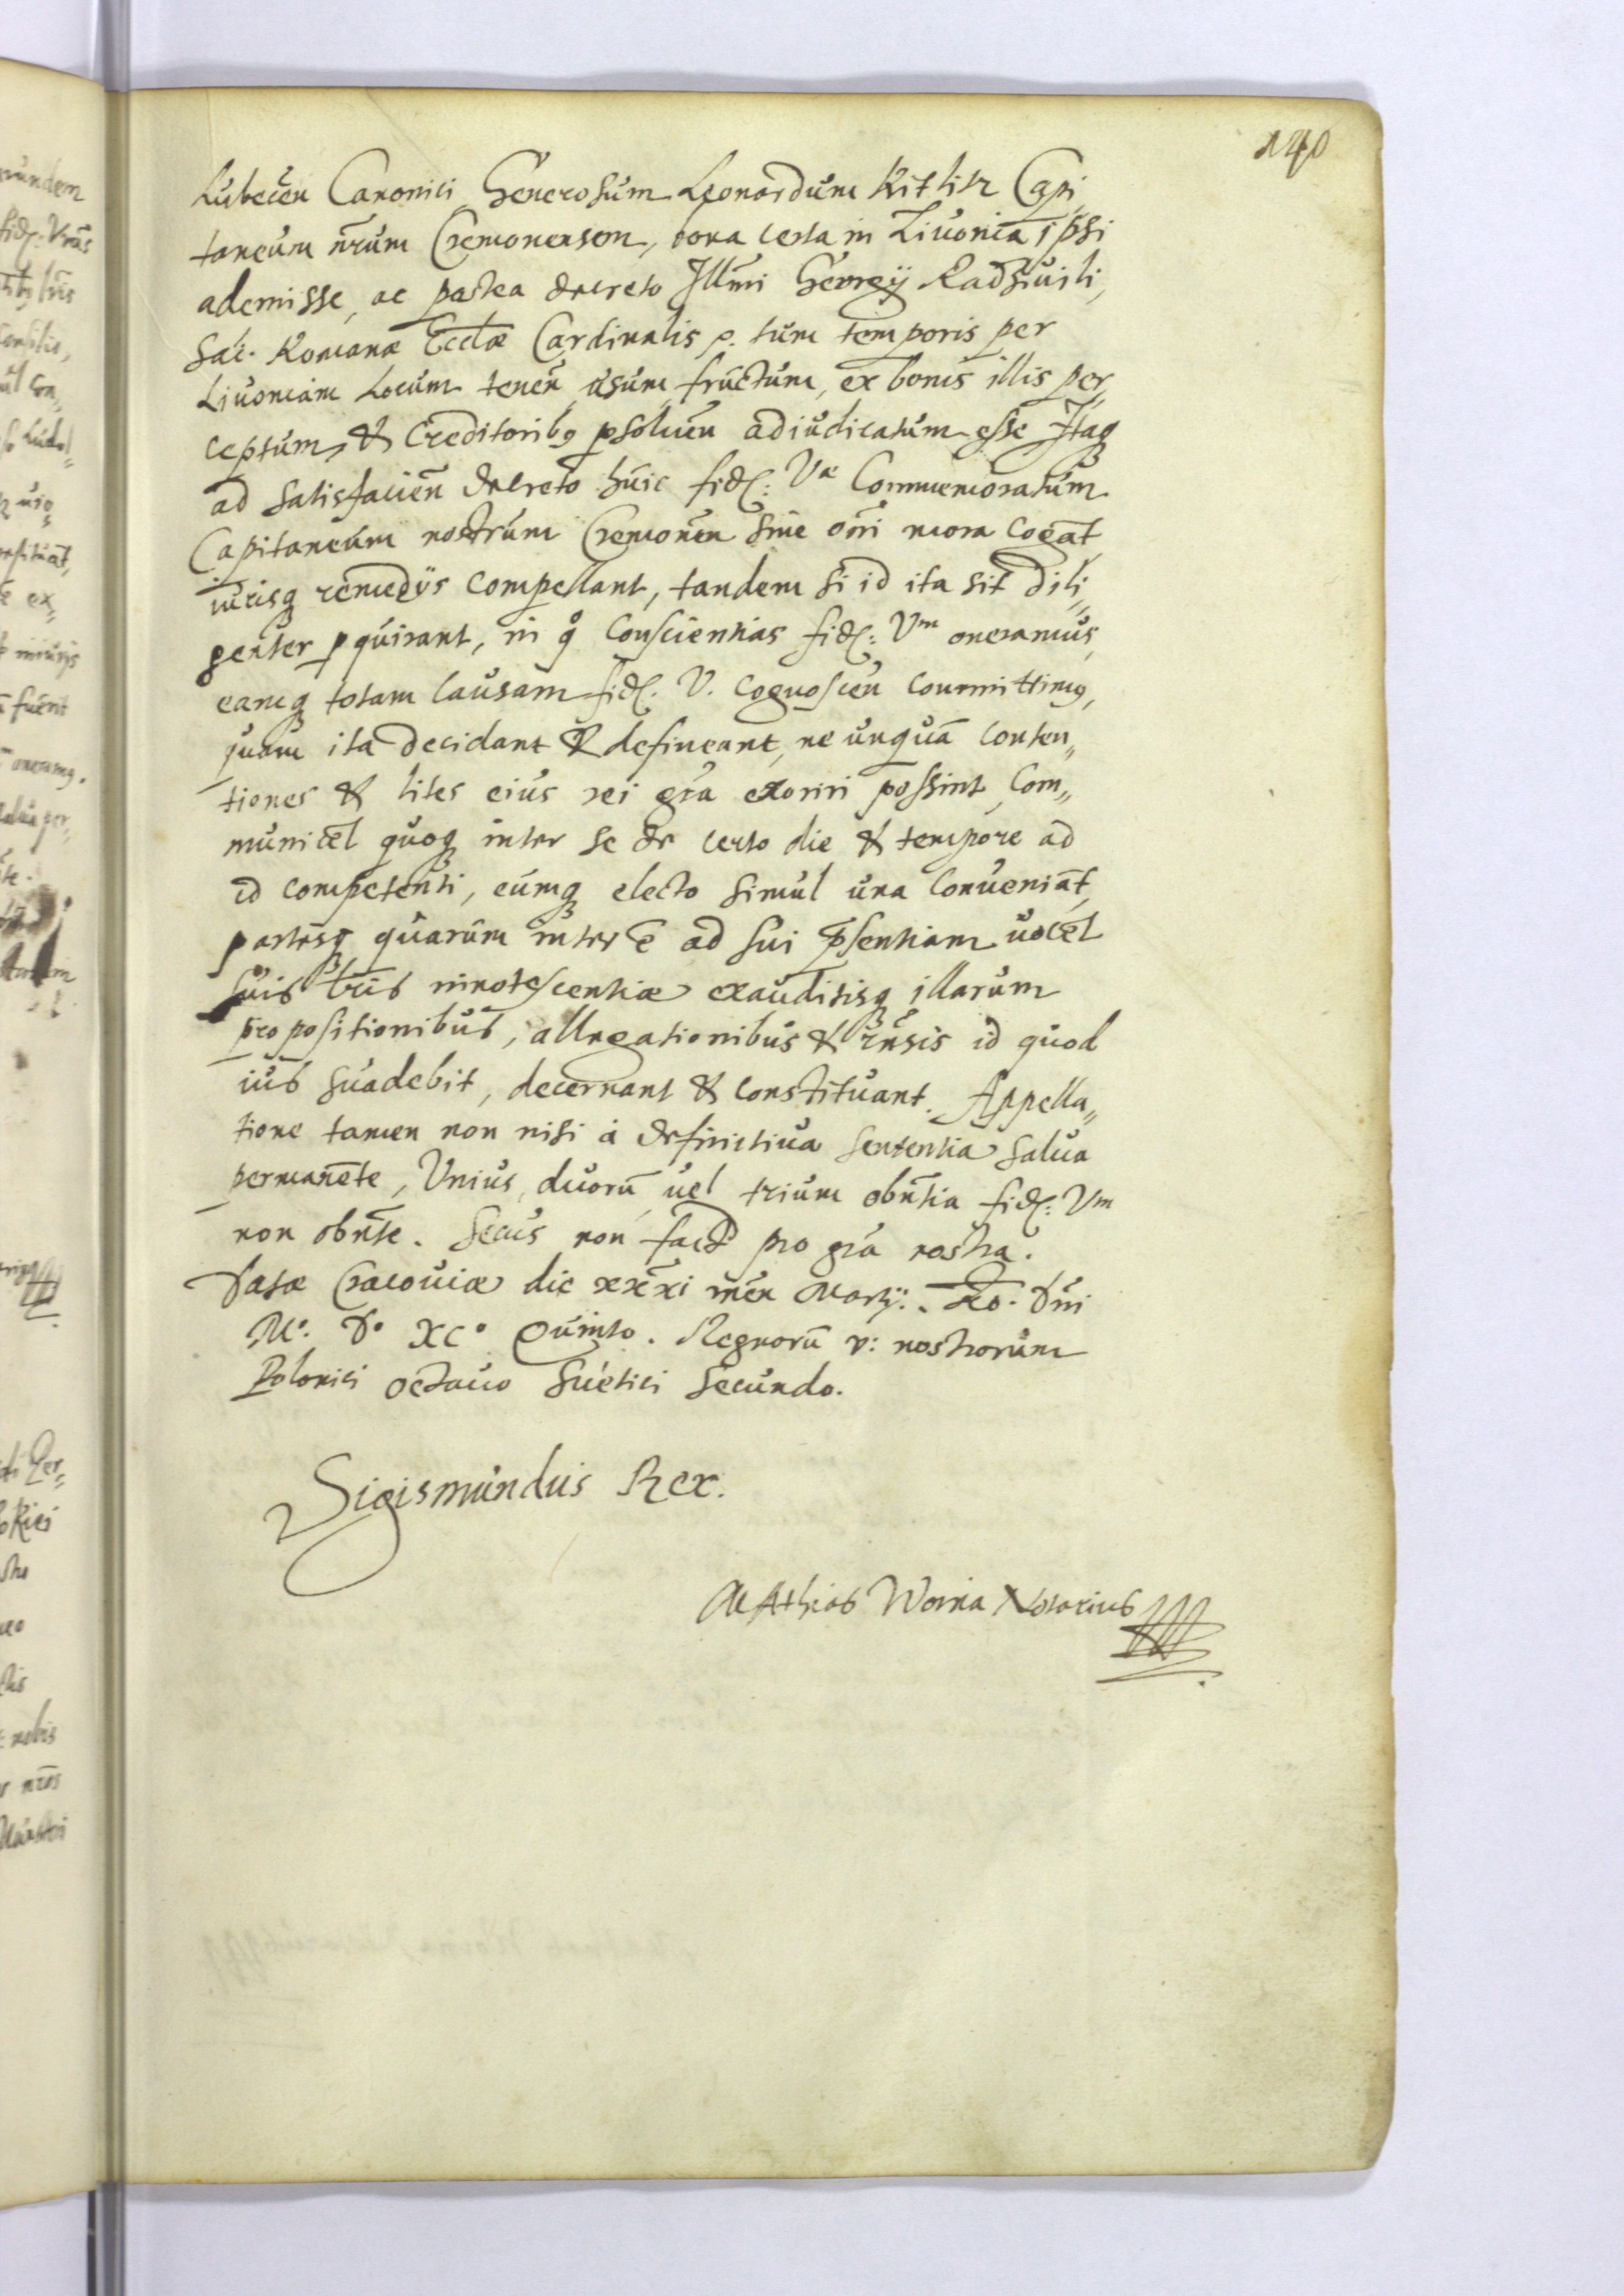 140
Lubecēn Canonici Generosum Leonardum Kitlitz Capi
taneum nr̄um Cremonensem, bona certa in Livonia ipsi
ademisse, ac postea decreto Illm̄i Georgij Radziuili,
Sac. Romanæ Eccl̄æ Cardinalis p. tum temporis per
Livoniam Locum tenēn usum fructum, ex bonis illis per„
ceptum, & Creditorib9 psoluēn adiudicatum esse Itaq
ad satisfaciēn decreto huic fid: Væ Commemoratum
Capitaneum nostrum Cremonēn sine om̄i mora cogāt
iurisq remedijs compellant, tandem si id ita sit dili„
genter pquirant, in q̊ Conscientias fid: Vm oneramus,
eamq totam causam fid. V. cognoscēn committim9,
quam ita decidant & defineant, ne unquā conten„
tiones & lites eius rei gr̄a exoriri possint, Com„
municēt quoq inter se de certo die & tempore ad
id competenti, eumq electo simul una conueniāt,
partesq quarum inter ē ad sui p̄sentiam uocēt
suis lr̄is innotescentiæ exauditisq illarum
propositionibus, allegationibus & r̄nsis id quod
ius suadebit, decernant & constituant. Appella„
tione tamen non nisi à definitiua sententia salua
permanēte, Vnius, duorū uel trium obn̄tia fid: Vm
non obn̄te. Secus non fact̄ pro gr̄a nostra.
Datæ Cracouiæ die xxxi mēn Martij. Ao. Dn̄i
Mo. Do XCo Quinto. Regnorū v: nostrorum
Polonici octauo Suetici secundo.
Sigismundus Rex.
Mathias Woina Notarius